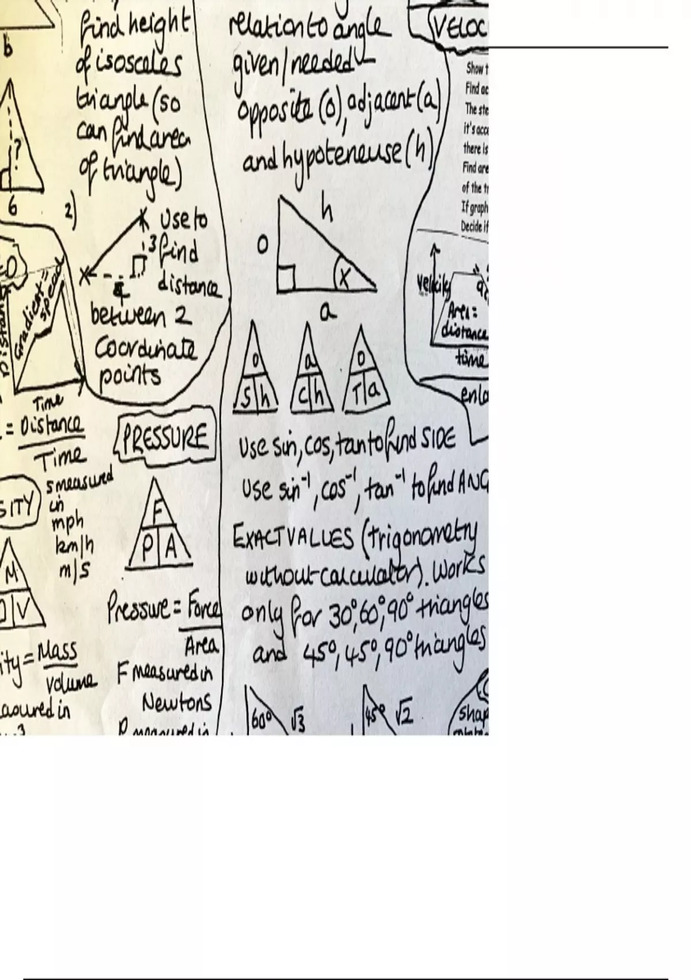 b
find height
of isosceles
triangle (so
can find area
of triangle)
?
6
2)
use to
find
distance
3
4
between 2
Coordinate
points
Gradient=
speed
Time
= Distance
Time
s measured
in
mph
km/h
m/s
SITY
M
D V
ity = Mass
Volume
asured in
3
PRESSURE
F
P A
Pressure = Force
Area
F measured in
Newtons
P measured in
relation to angle
given/needed
opposite (o), adjacent (a)
and hypoteneuse (h)
h
o
x
a
o
s h
a
c h
o
T a
Use sin, cos, tan to find SIDE
Use sin⁻¹, cos⁻¹, tan⁻¹ to find ANG
EXACT VALUES (trigonometry
without calculator). Works
only for 30°, 60°, 90° triangles
and 45°, 45°, 90° triangles
60° √3
45° √2
VELOC
Show t
Find ac
The ste
it's acc
there is
Find are
of the tr
If graph
Decide if
velocity
Area=
distance
time
enla
Shap